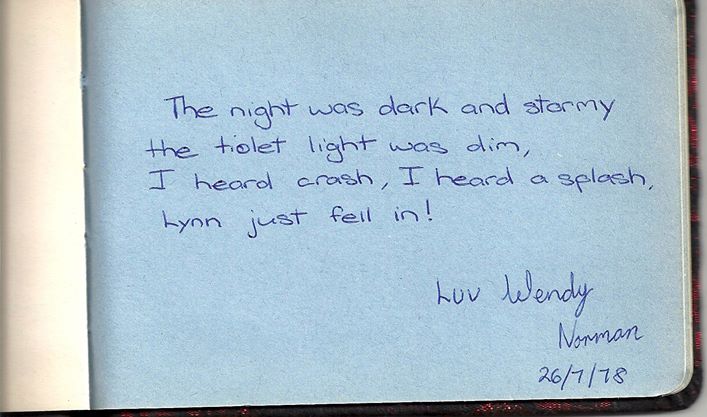 The night was dark and stormy
the tiolet light was dim,
I heard crash, I heard a splash,
Lynn just fell in!
Luv Wendy
Norman
26/7/78